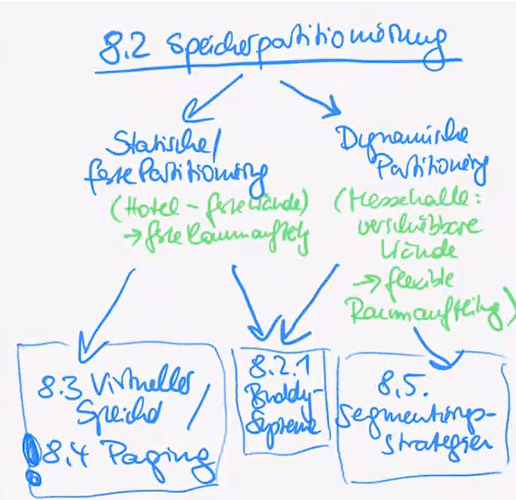 8.2 Speicherpartitionierung
Statische/
feste Partitionierung
(Hotel - feste Wände)
→ feste Raumaufteilg
Dynamische
Partitionierg
(Messehalle:
verschiebbare
Wände
→ flexible
Raumaufteilung)
8.3 Virtueller
Speicher /
8.4 Paging
8.2.1
Buddy-
Systeme
8.5.
Segmentierungs-
strategien